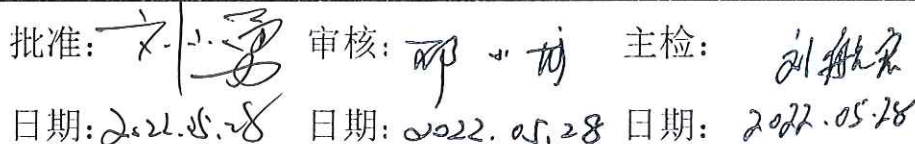 批准：刘小勇 审核：邓小 主检：刘
日期：2022.05.28 日期：2022.05.28 日期：2022.05.28